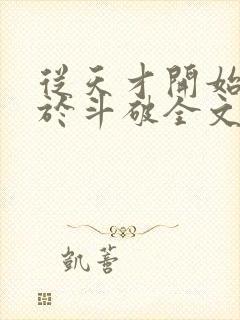 從天才開始
於斗破全文
凱薈